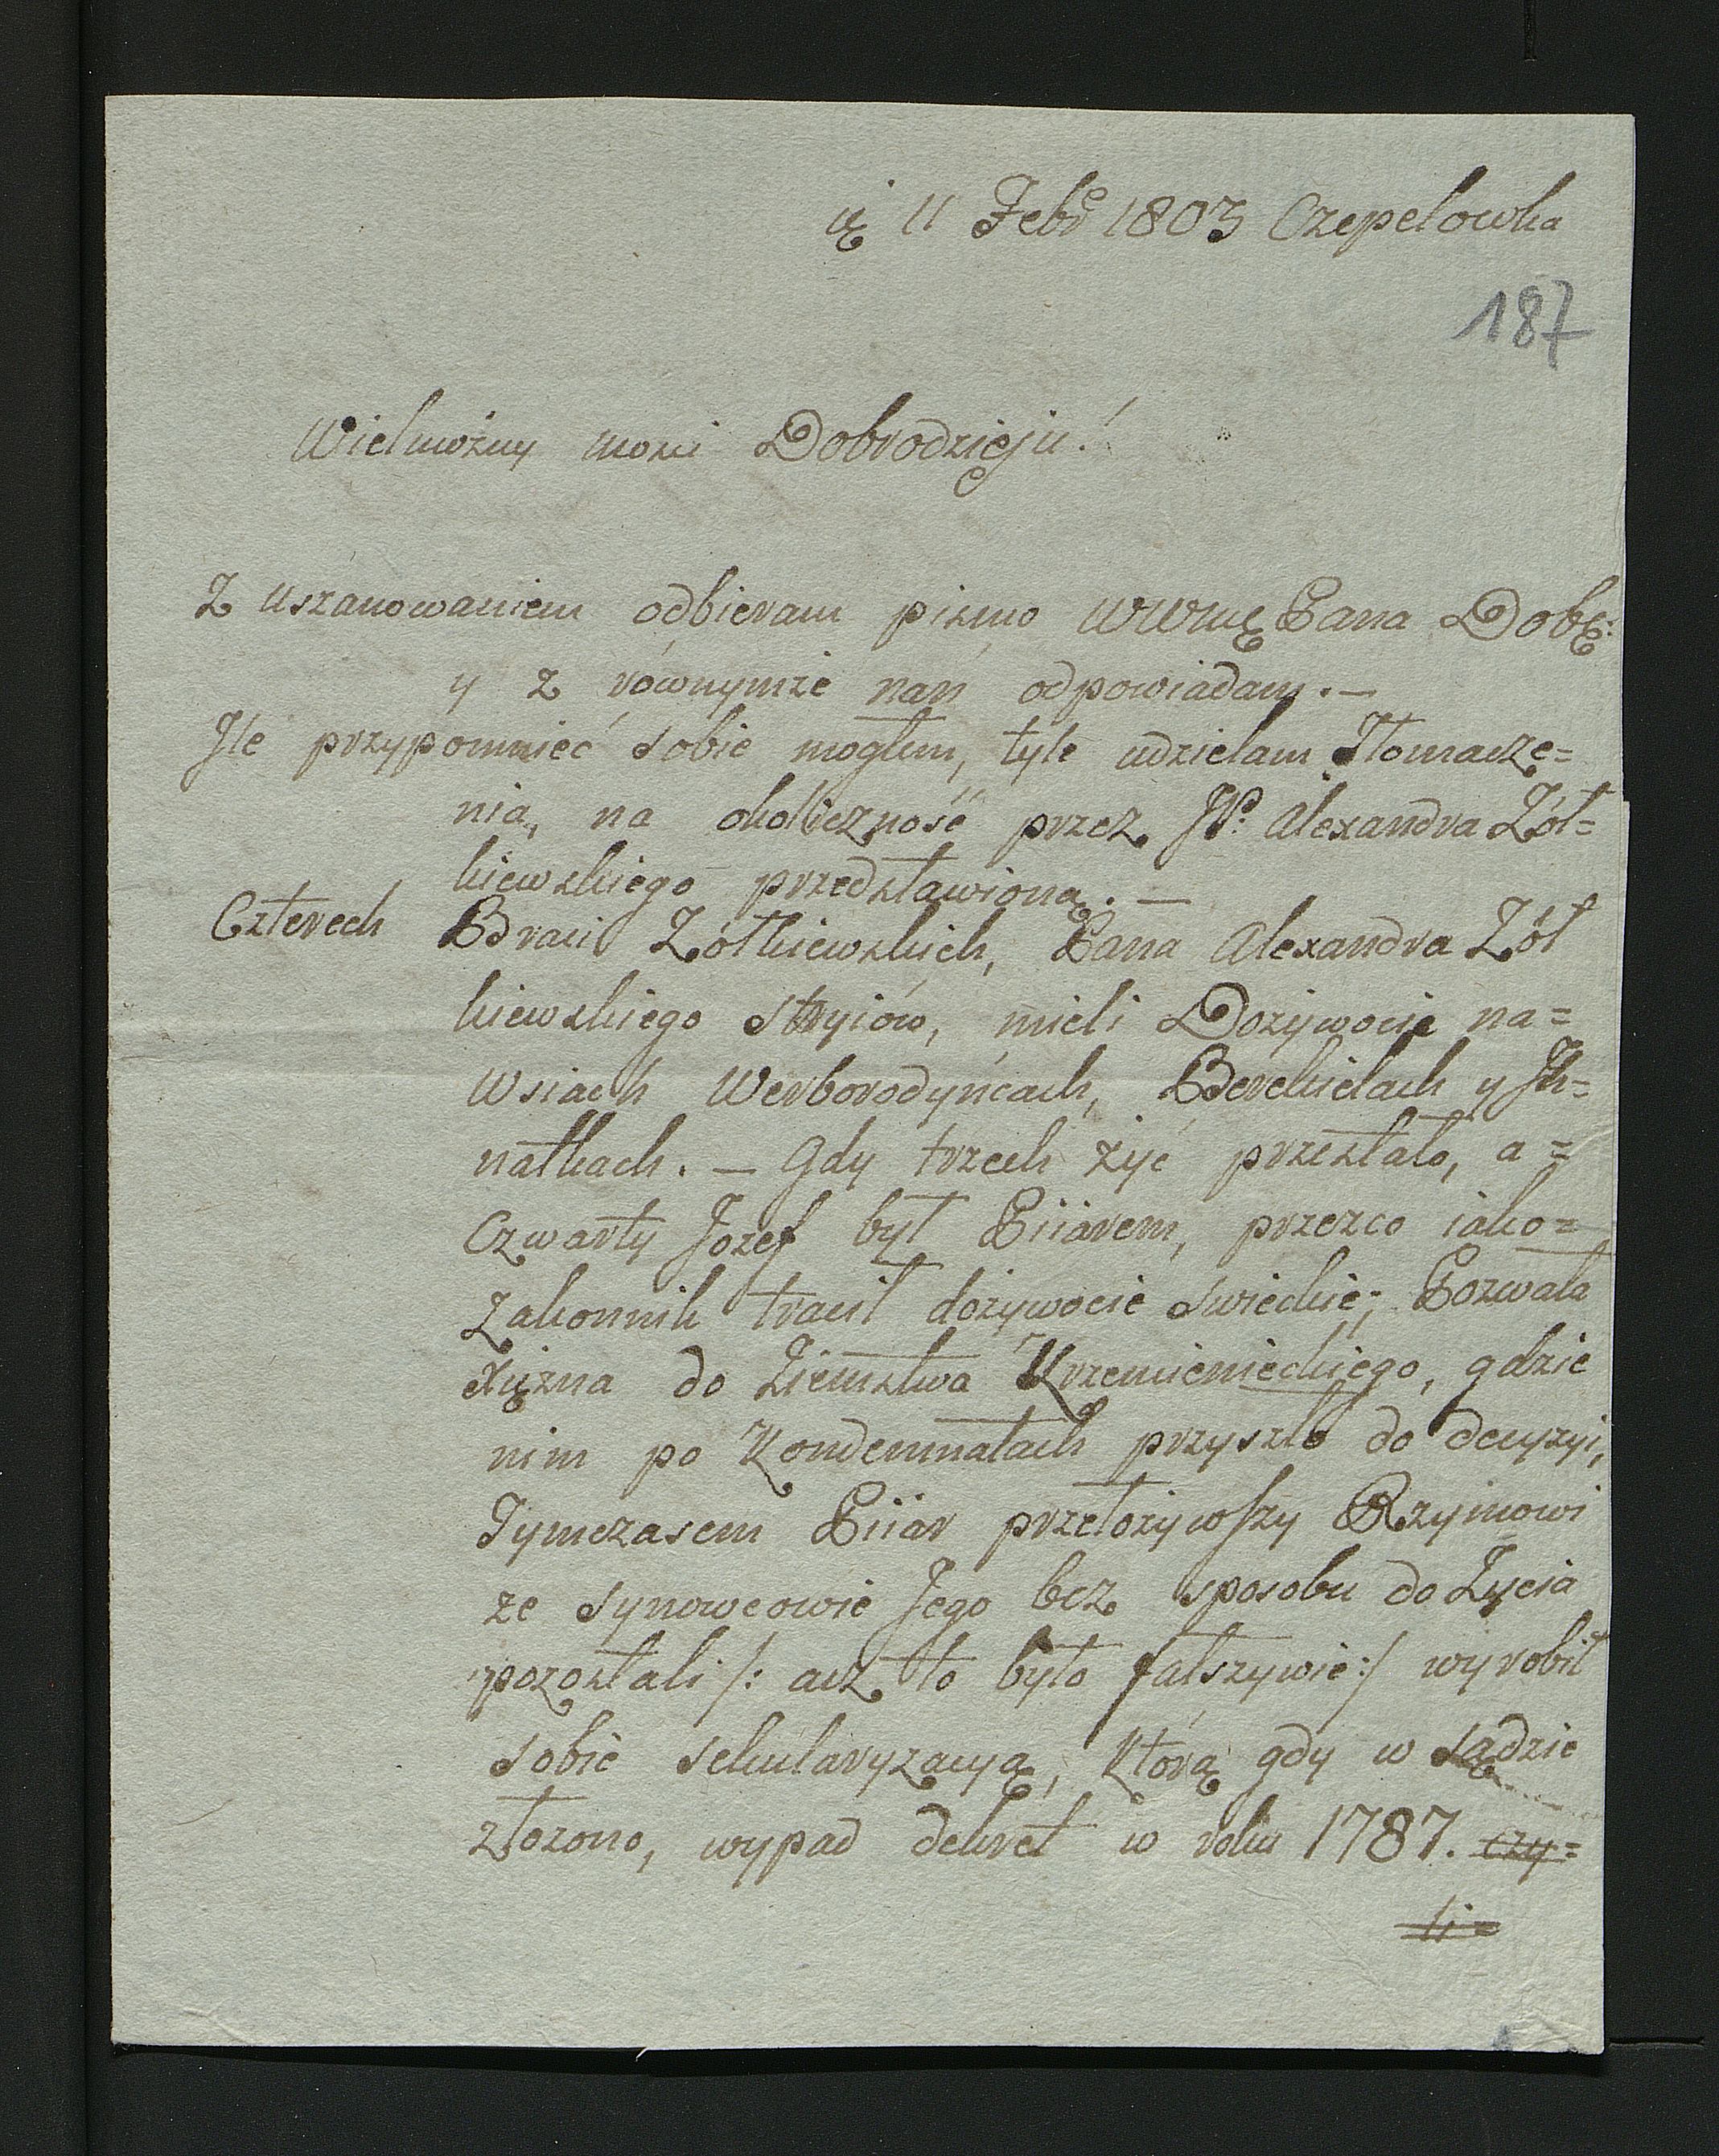 11 Febr 1803 Czepelowka
187
Wielmożny mosci Dobrodzieju!
Z uszanowaniem odbieram pismo WWmę Pana Dobę:
y z równymże nań odpowiadam. —
Ile przypomnieć sobie mogłem, tyle udzielam Tłomacze=
nia, na okoliczność przez JP: Alexandra Żół=
kiewskiego przedstawioną. —
Czterech Braci Żółkiewskich, Pana Alexandra Żół
kiewskiego stryiów, mieli Dożywocie na=
Wsiach Werborodyńcach, Berekielach y Ih=
natkach. — Gdy trzech żyć przestało, a=
Czwarty Jozef był Piiarem, przezco iako=
Zakonnik tracił dożywocie swieckie; Pozwała
Xiężna do Ziemstwa Krzemienieckiego, gdzie
nim po Kondemnatach przyszło do decyzyi,
Tymczasem Piiar przełożywszy Rzymowi
że synowcowie Jego bez sposobu do Życia
pozostali /: acz to było fałszywie:/ wyrobił
sobie sekularyzacyą, którą gdy w sądzie
złożono, wypad dekret w roku 1787. czy=
li=